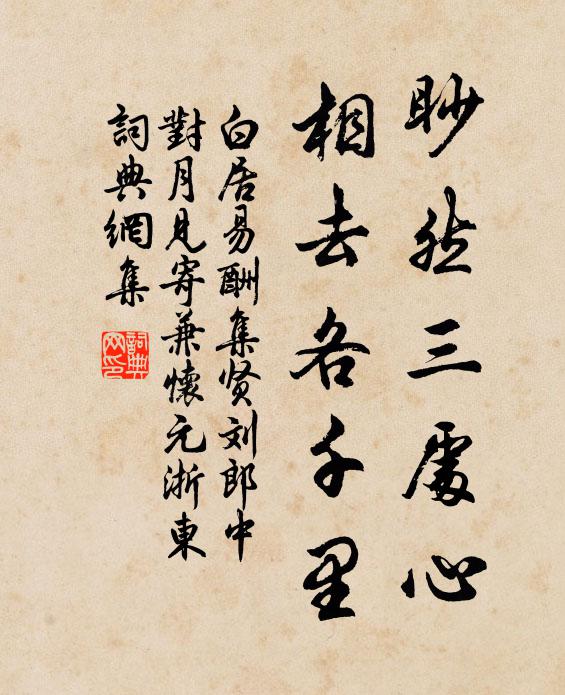 眇然三處心
相去各千里
白居易酬集贤刘郎中
對月見寄兼懷元浙東
詞典網集
詞典
网印